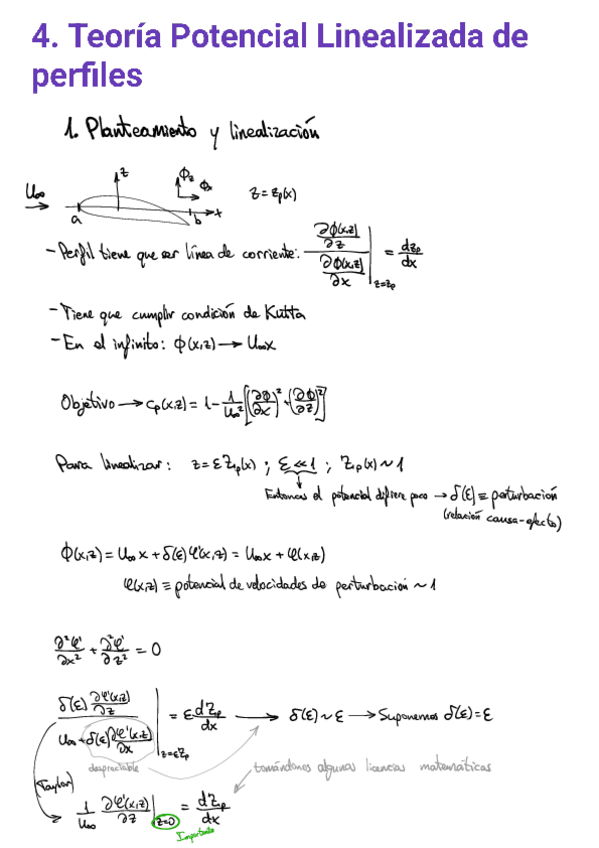 4. Teoría Potencial Linealizada de
perfiles
1. Planteamiento y linealización
U∞ z Φz Φx z = zp(x)
a b x
- Perfil tiene que ser línea de corriente: ∂Φ(x,z)/∂z / ∂Φ(x,z)/∂x |z=zp = dzp/dx
- Tiene que cumplir condición de Kutta
- En el infinito: Φ(x,z) → U∞x
Objetivo → cp(x,z) = 1 - 1/U∞² [(∂Φ/∂x)² + (∂Φ/∂z)²]
Para linealizar: z = εZp(x) ; ε ≪ 1 ; Zp(x) ~ 1
Entonces el potencial difiere poco → δ(ε) ≡ perturbación
(relación causa-efecto)
Φ(x,z) = U∞ x + δ(ε)φ'(x,z) = U∞ x + φ(x,z)
φ(x,z) ≡ potencial de velocidades de perturbación ~ 1
∂²φ'/∂x² + ∂²φ'/∂z² = 0
δ(ε) ∂φ'(x,z)/∂z / U∞ + δ(ε) ∂φ'(x,z)/∂x |z=εZp = ε dZp/dx → δ(ε) ~ ε → Suponemos δ(ε) = ε
despreciable
tomándonos algunas licencias matemáticas
(Taylor)
1/U∞ ∂φ'(x,z)/∂z |z=0 = dZp/dx
Importante